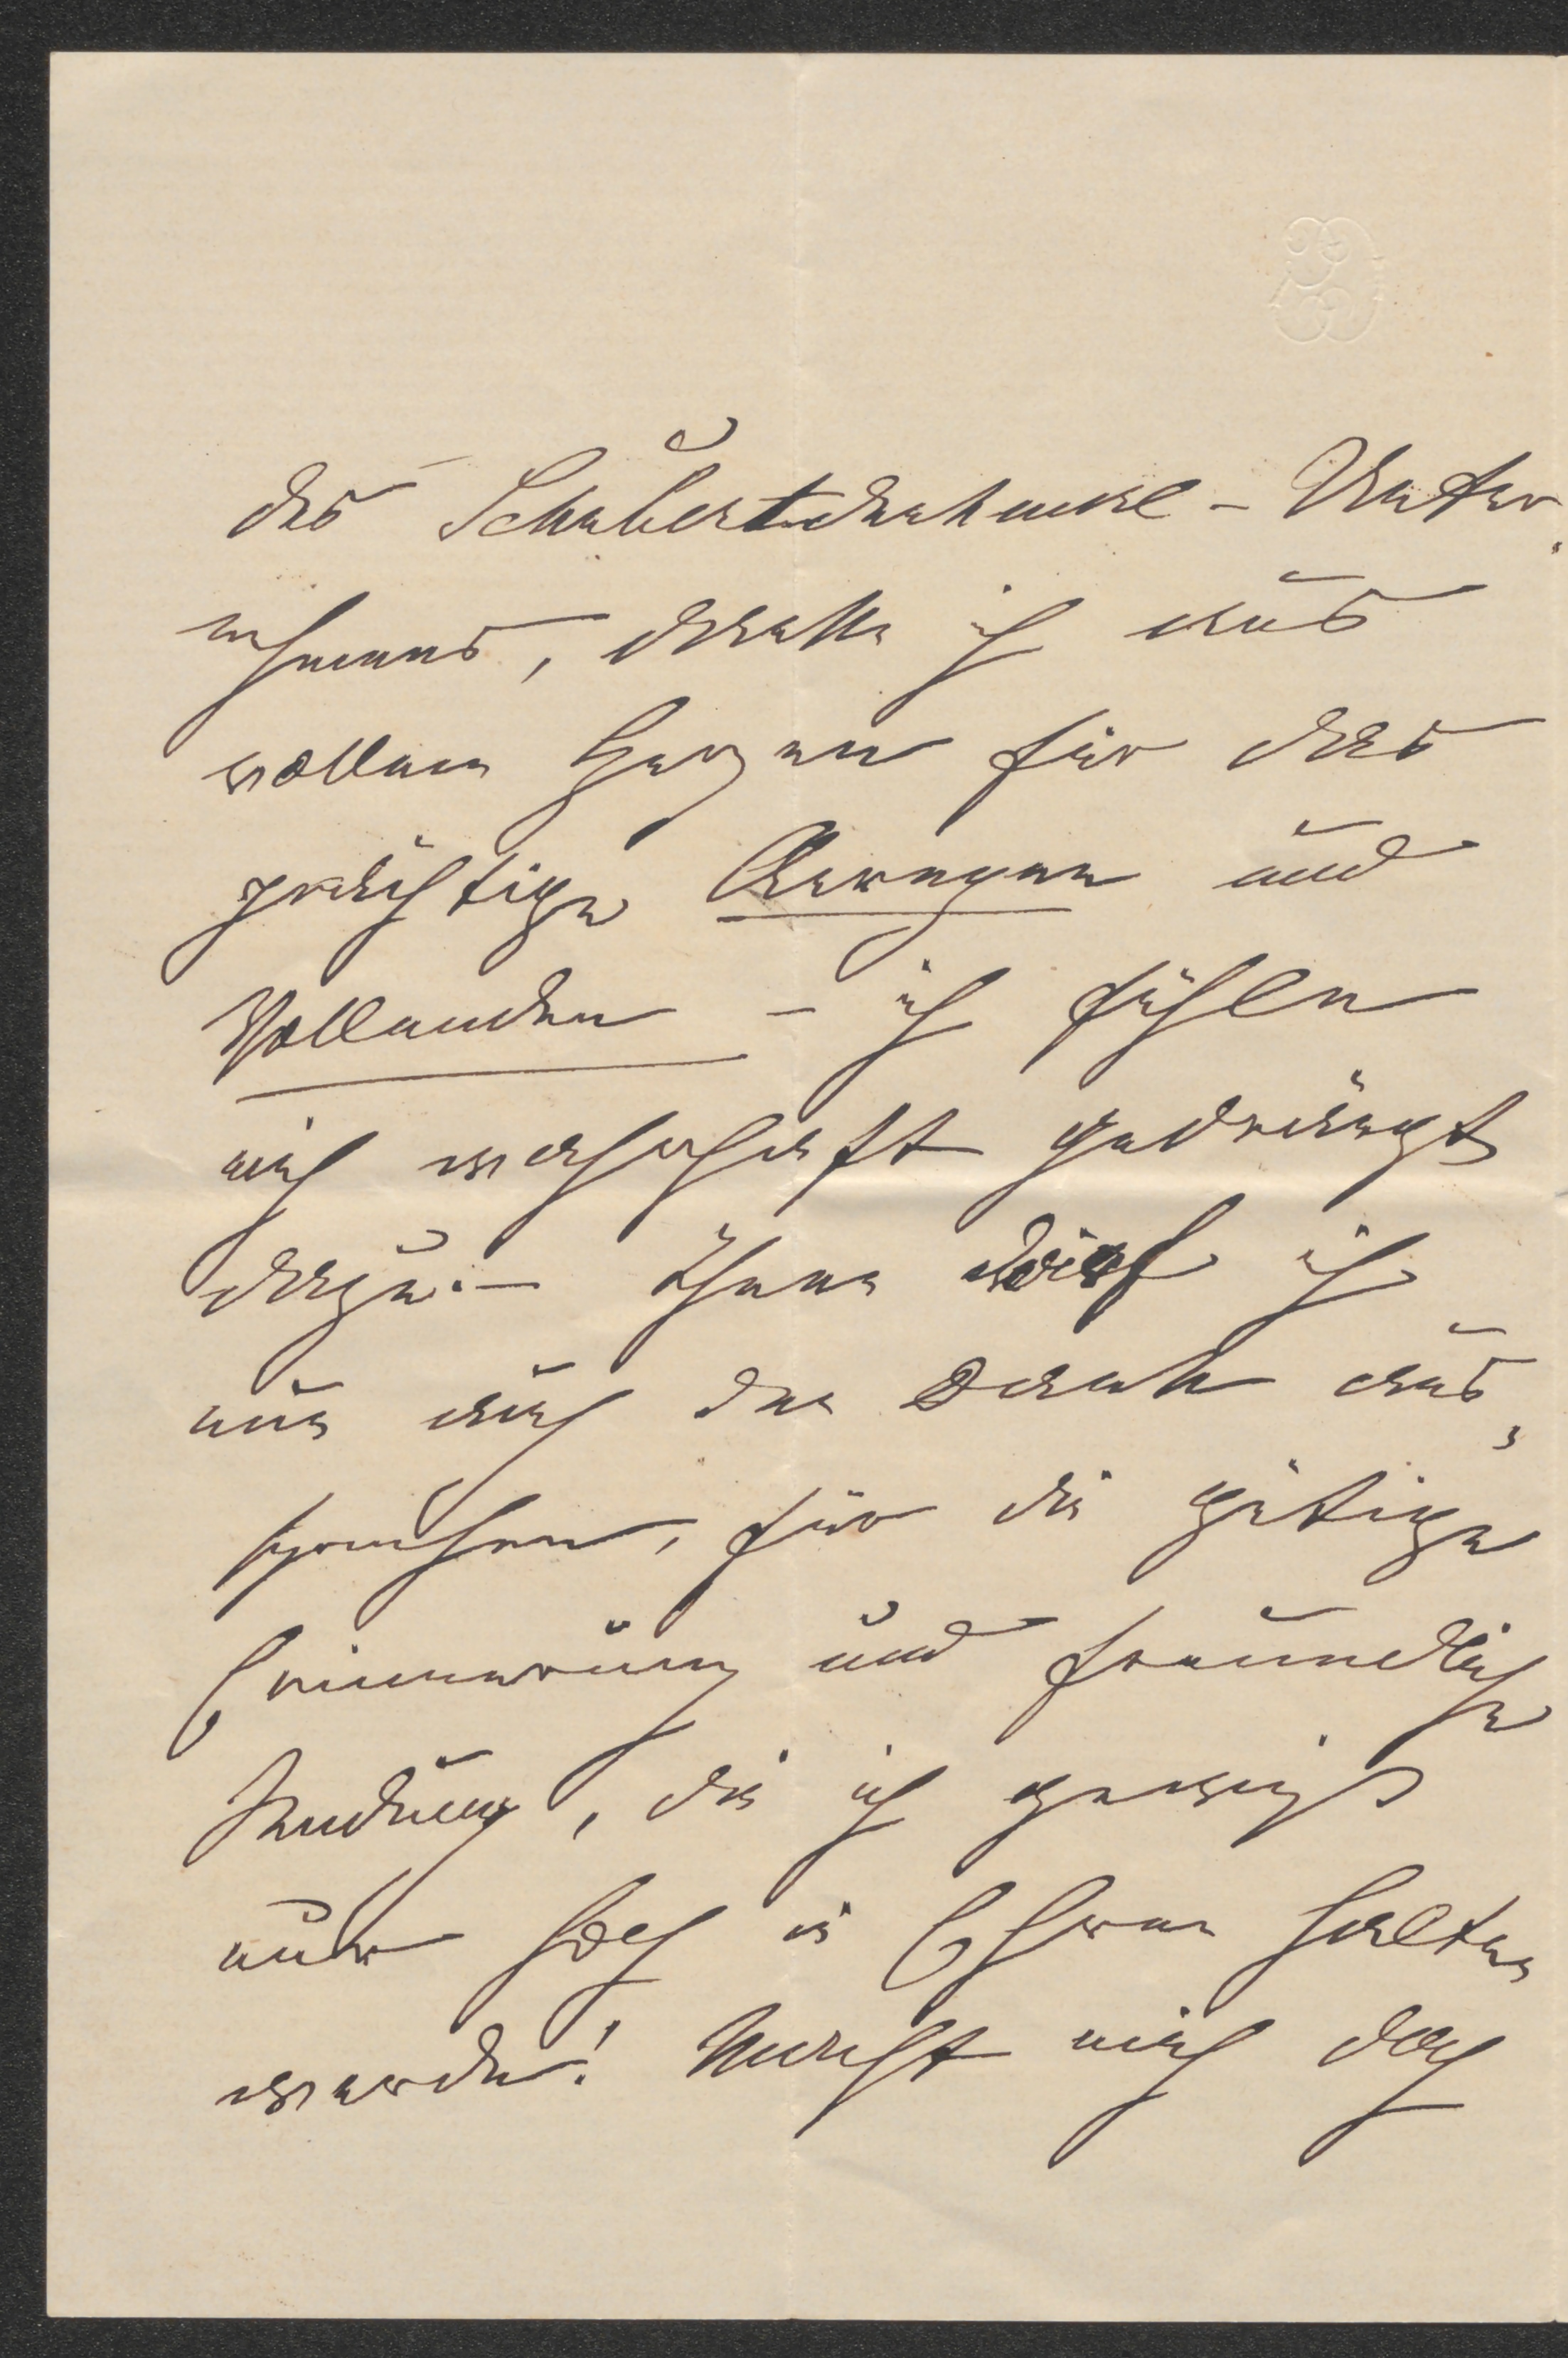 des Schubertdenkmal-Unter,
nehmens, danke ich aus
vollem Herzen für das
prächtige Anregen und
Vollenden – ich fühle
mich wahrhaft gedrängt
dazu. – Ihnen darf ich
nun auch den Dank aus,
sprechen, für die gütige
Erinnerung und freundliche
Sendung, die ich gewiß
nur hoch in Ehren halten
werde! Macht mich doch